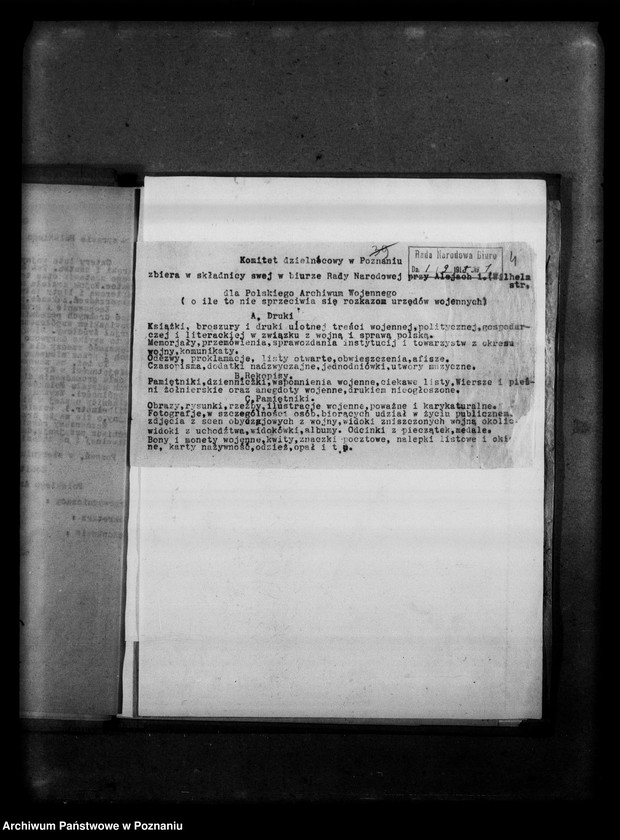 39
Rada Narodowa Biuro
4
Komitet dzielnicowy w Poznaniu
Da 1 9 1918
zbiera w składnicy swej w biurze Rady Narodowej przy Alejach i. (Wilhelm
str.
dla Polskiego Archiwum Wojennego
( o ile to nie sprzeciwia się rozkazom urzędów wojennych)
A. Druki
Książki, broszury i druki ulotnej treści wojennej,politycznej,gospodar-
czej i literackiej w związku z wojną i sprawą polską.
Memorjały,przemówienia,sprawozdania instytucji i towarzystw z okresu
wojny,komunikaty.
Odezwy, proklamacje, listy otwarte,obwieszczenia,afisze.
Czasopisma,dodatki nadzwyczajne,jednodniówki,utwory muzyczne.
B.Rękopisy.
Pamiętniki,dzienniczki,wspomnienia wojenne,ciekawe listy.Wiersze i pieś-
ni żołnierskie oraz anegdoty wojenne,drukiem nieogłoszone.
C.Pamiętniki.
Obrazy,rysunki,rzeźby,ilustracje wojenne,poważne i karykaturalne.
Fotografje,w szczególności osób biorących udział w życiu publicznem.
zdjęcia z scen obyczajowych z wojny,widoki zniszczonych wojną okolic
widoki z uchodźtwa,widokówki,albumy. Odcinki z pieczątek,medale.
Bony i monety wojenne,kwity,znaczki pocztowe, nalepki listowe i oki
ne, karty na żywność,odzież,opał i t p.
Archiwum Państwowe w Poznaniu